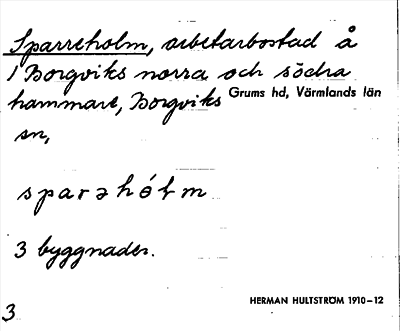 Sparreholm, arbetarbostad å
1 Borgviks norra och södra
hammare, Borgviks Grums hd, Värmlands län
sn,
sparəhól̵m
3 byggnader.
HERMAN HULTSTRÖM 1910–12
3